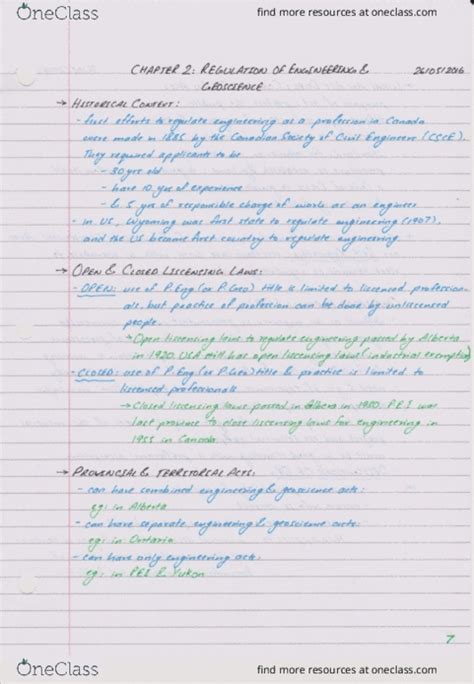 OneClass
find more resources at oneclass.com
CHAPTER 2: REGULATION OF ENGINEERING & 26/05/2016
GEOSCIENCE:
→ HISTORICAL CONTEXT:
- first efforts to regulate engineering as a profession in Canada
were made in 1885 by the Canadian Society of Civil Engineers (CSCE).
They required applicants to be
- 30 yrs old
- have 10 yrs of experience
- & 5 yrs of responsible charge of works as an engineer
- in US, Wyoming was first state to regulate engineering (1907),
and the US became first country to regulate engineering.
→ OPEN & CLOSED LISCENSING LAWS:
- OPEN: use of P.Eng (or P.Geo) title is limited to liscensed profession-
als, but practice of profession can be done by unliscensed
people.
→ Open liscensing laws to regulate engineering passed by Alberta
in 1920. USA still has open liscensing laws (industrial exemption)
- CLOSED: use of P.Eng (or P.Geo) title & practice is limited to
liscensed professionals
→ Closed liscensing laws passed in Alberta in 1930. PEI was
last province to close liscensing laws for engineering in
1955 in Canada.
→ PROVENCIAL & TERRITORIAL ACTS:
- can have combined engineering & geoscience acts:
eg: in Alberta
- can have separate engineering & geoscience acts:
eg: in Ontario
- can have only engineering acts:
eg: in PEI & Yukon
7
OneClass
find more resources at oneclass.com